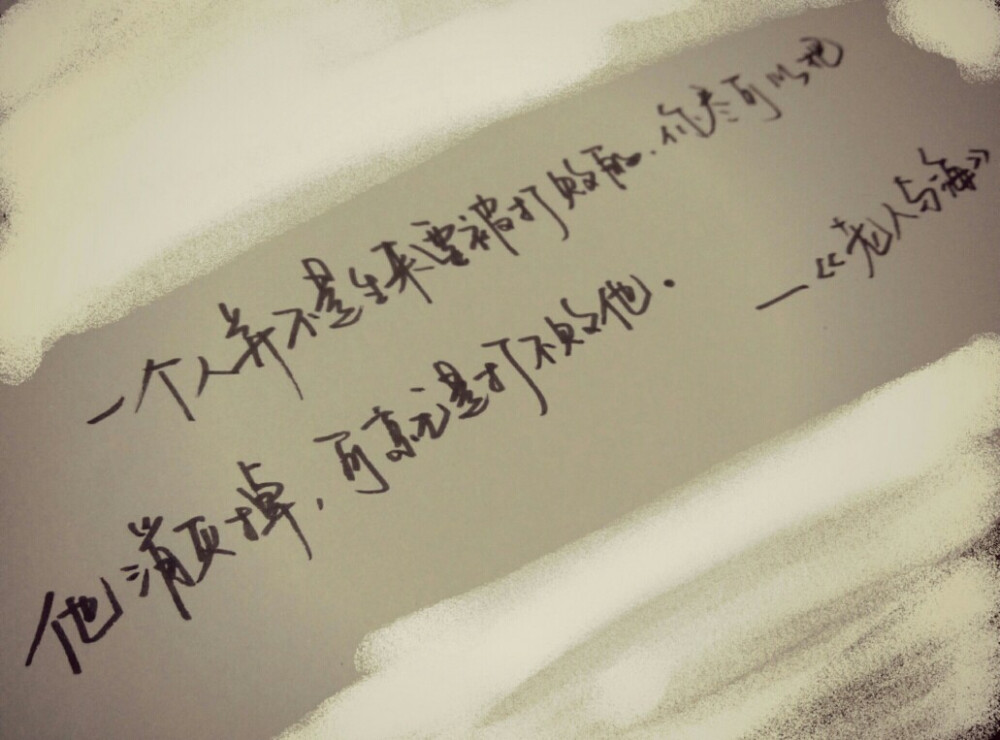 一个人并不是生来要被打败的.你尽可以把
他消灭掉,可就是打不败他.
—《老人与海》